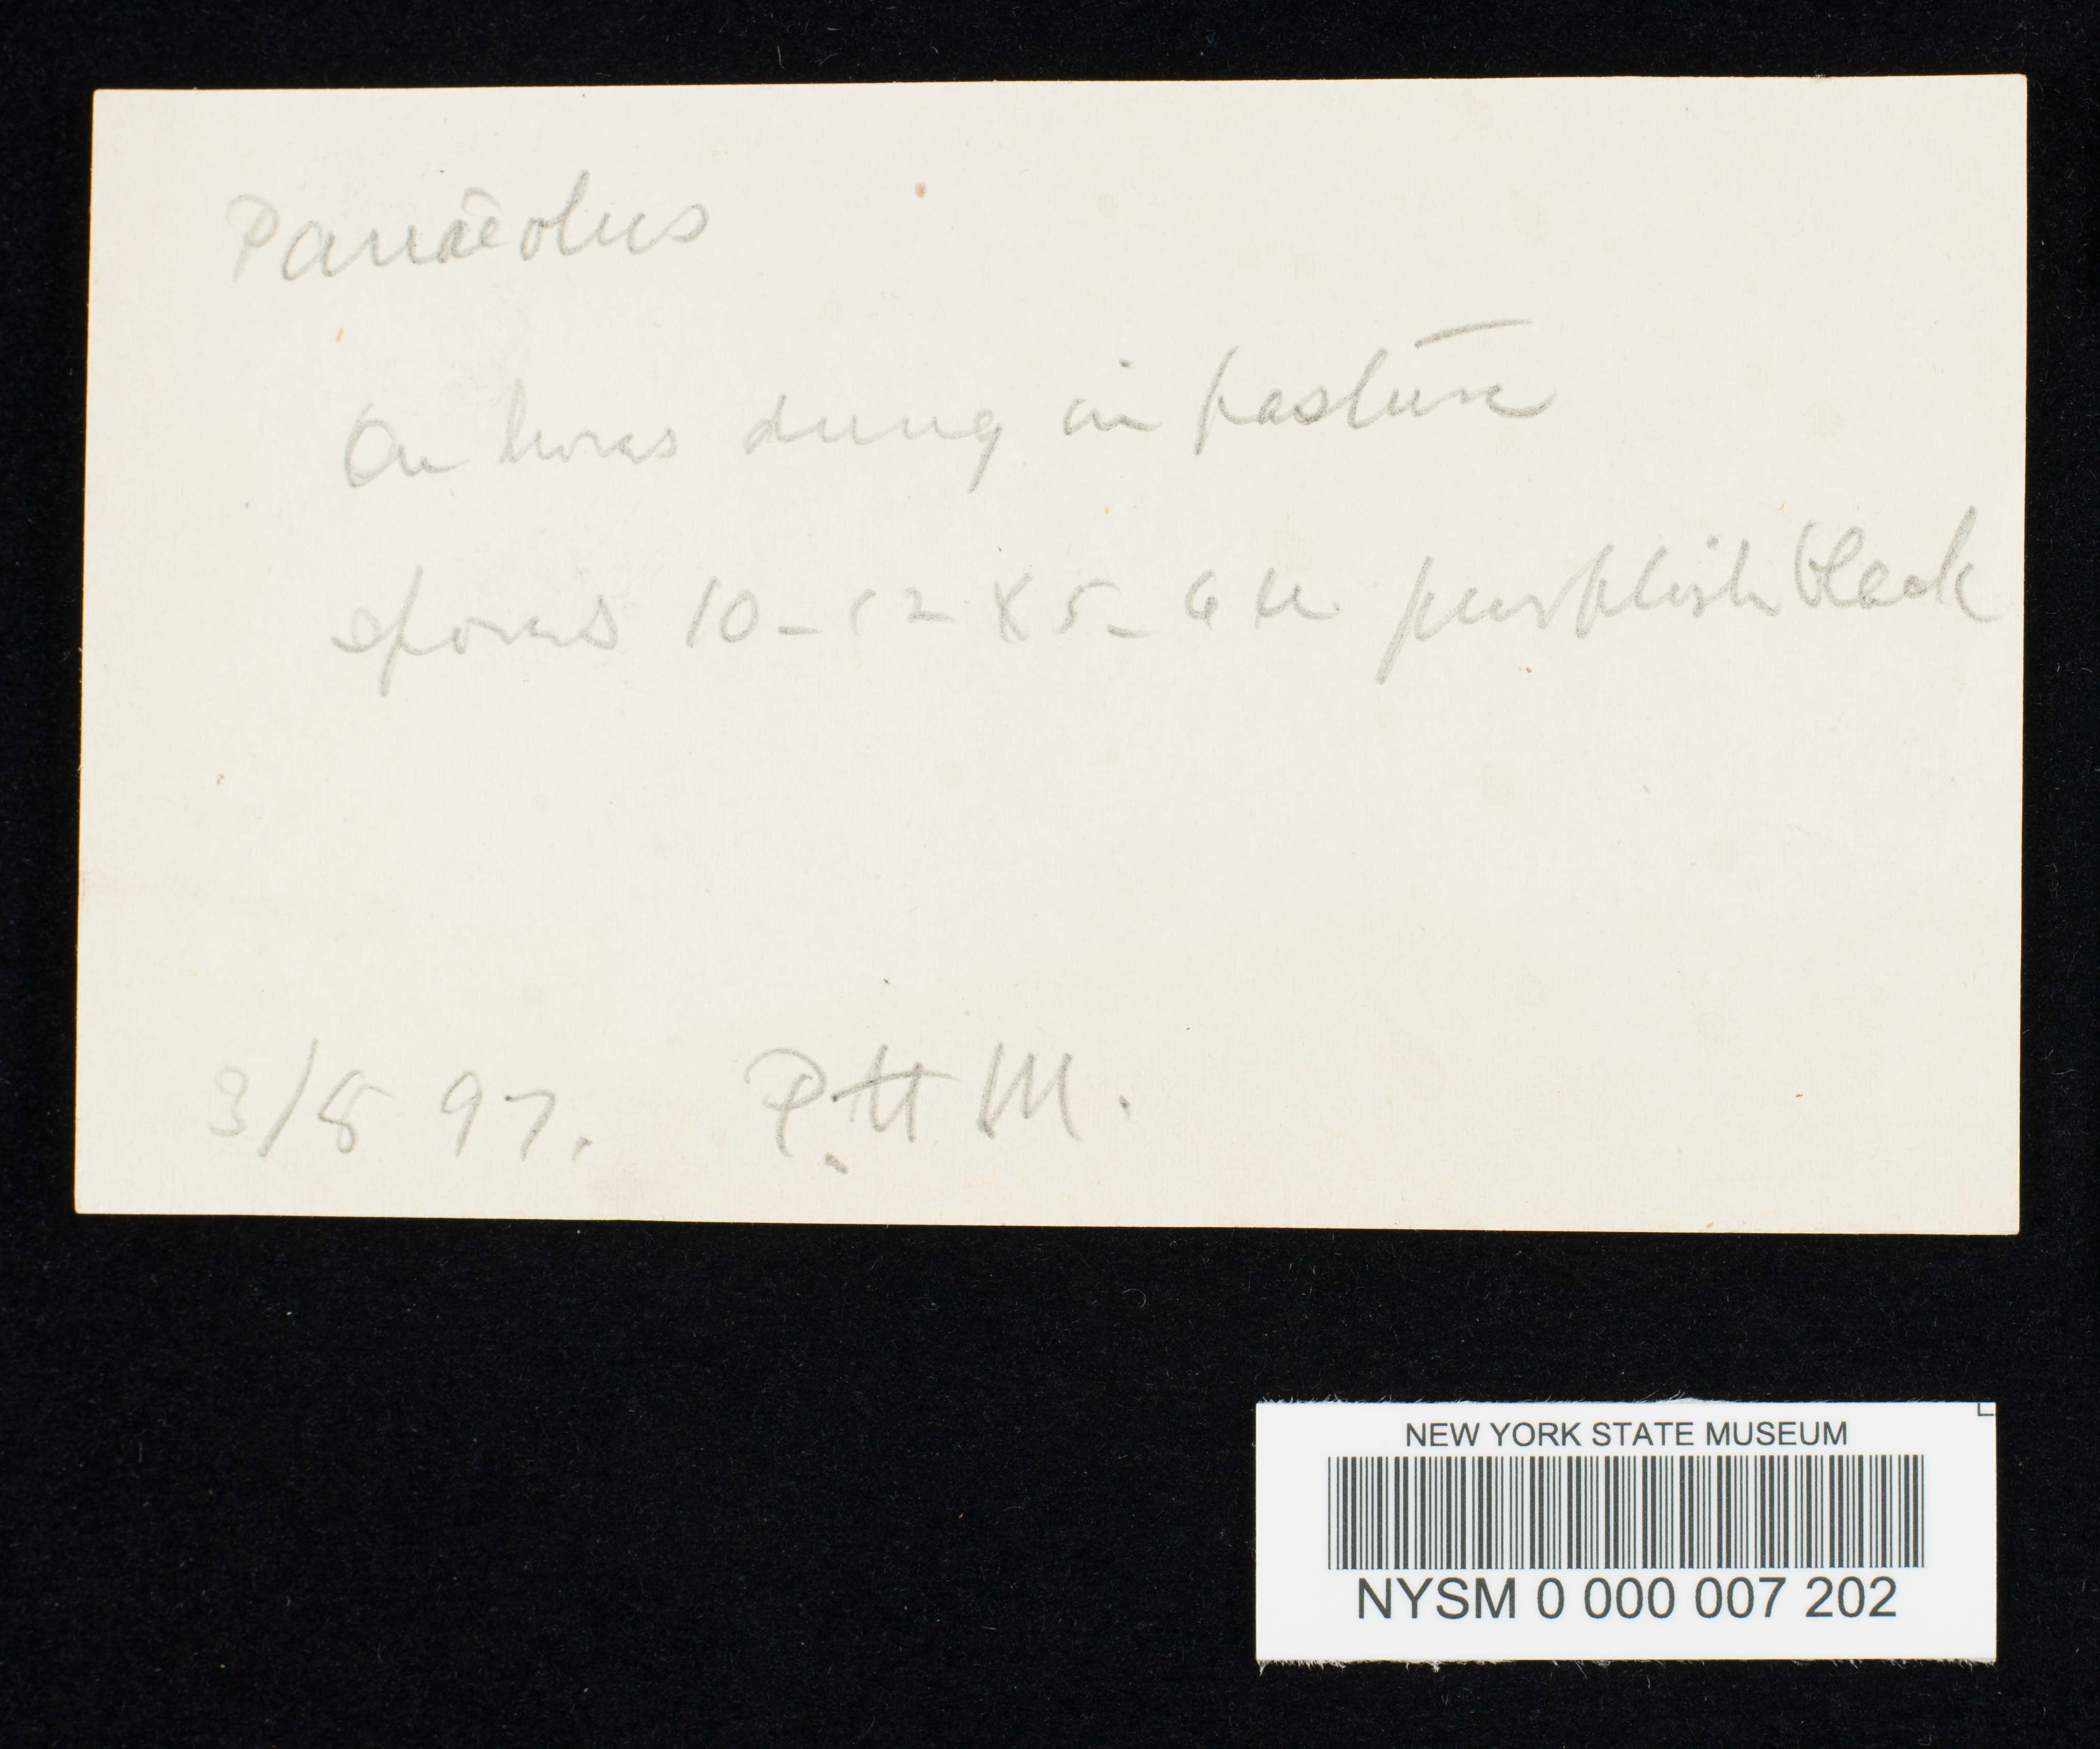 Panaeolus
On horse dung in pasture
spores 10-12 X 5-6 µ purplish black
3/8 97. P.H.M.
NEW YORK STATE MUSEUM
NYSM 0 000 007 202